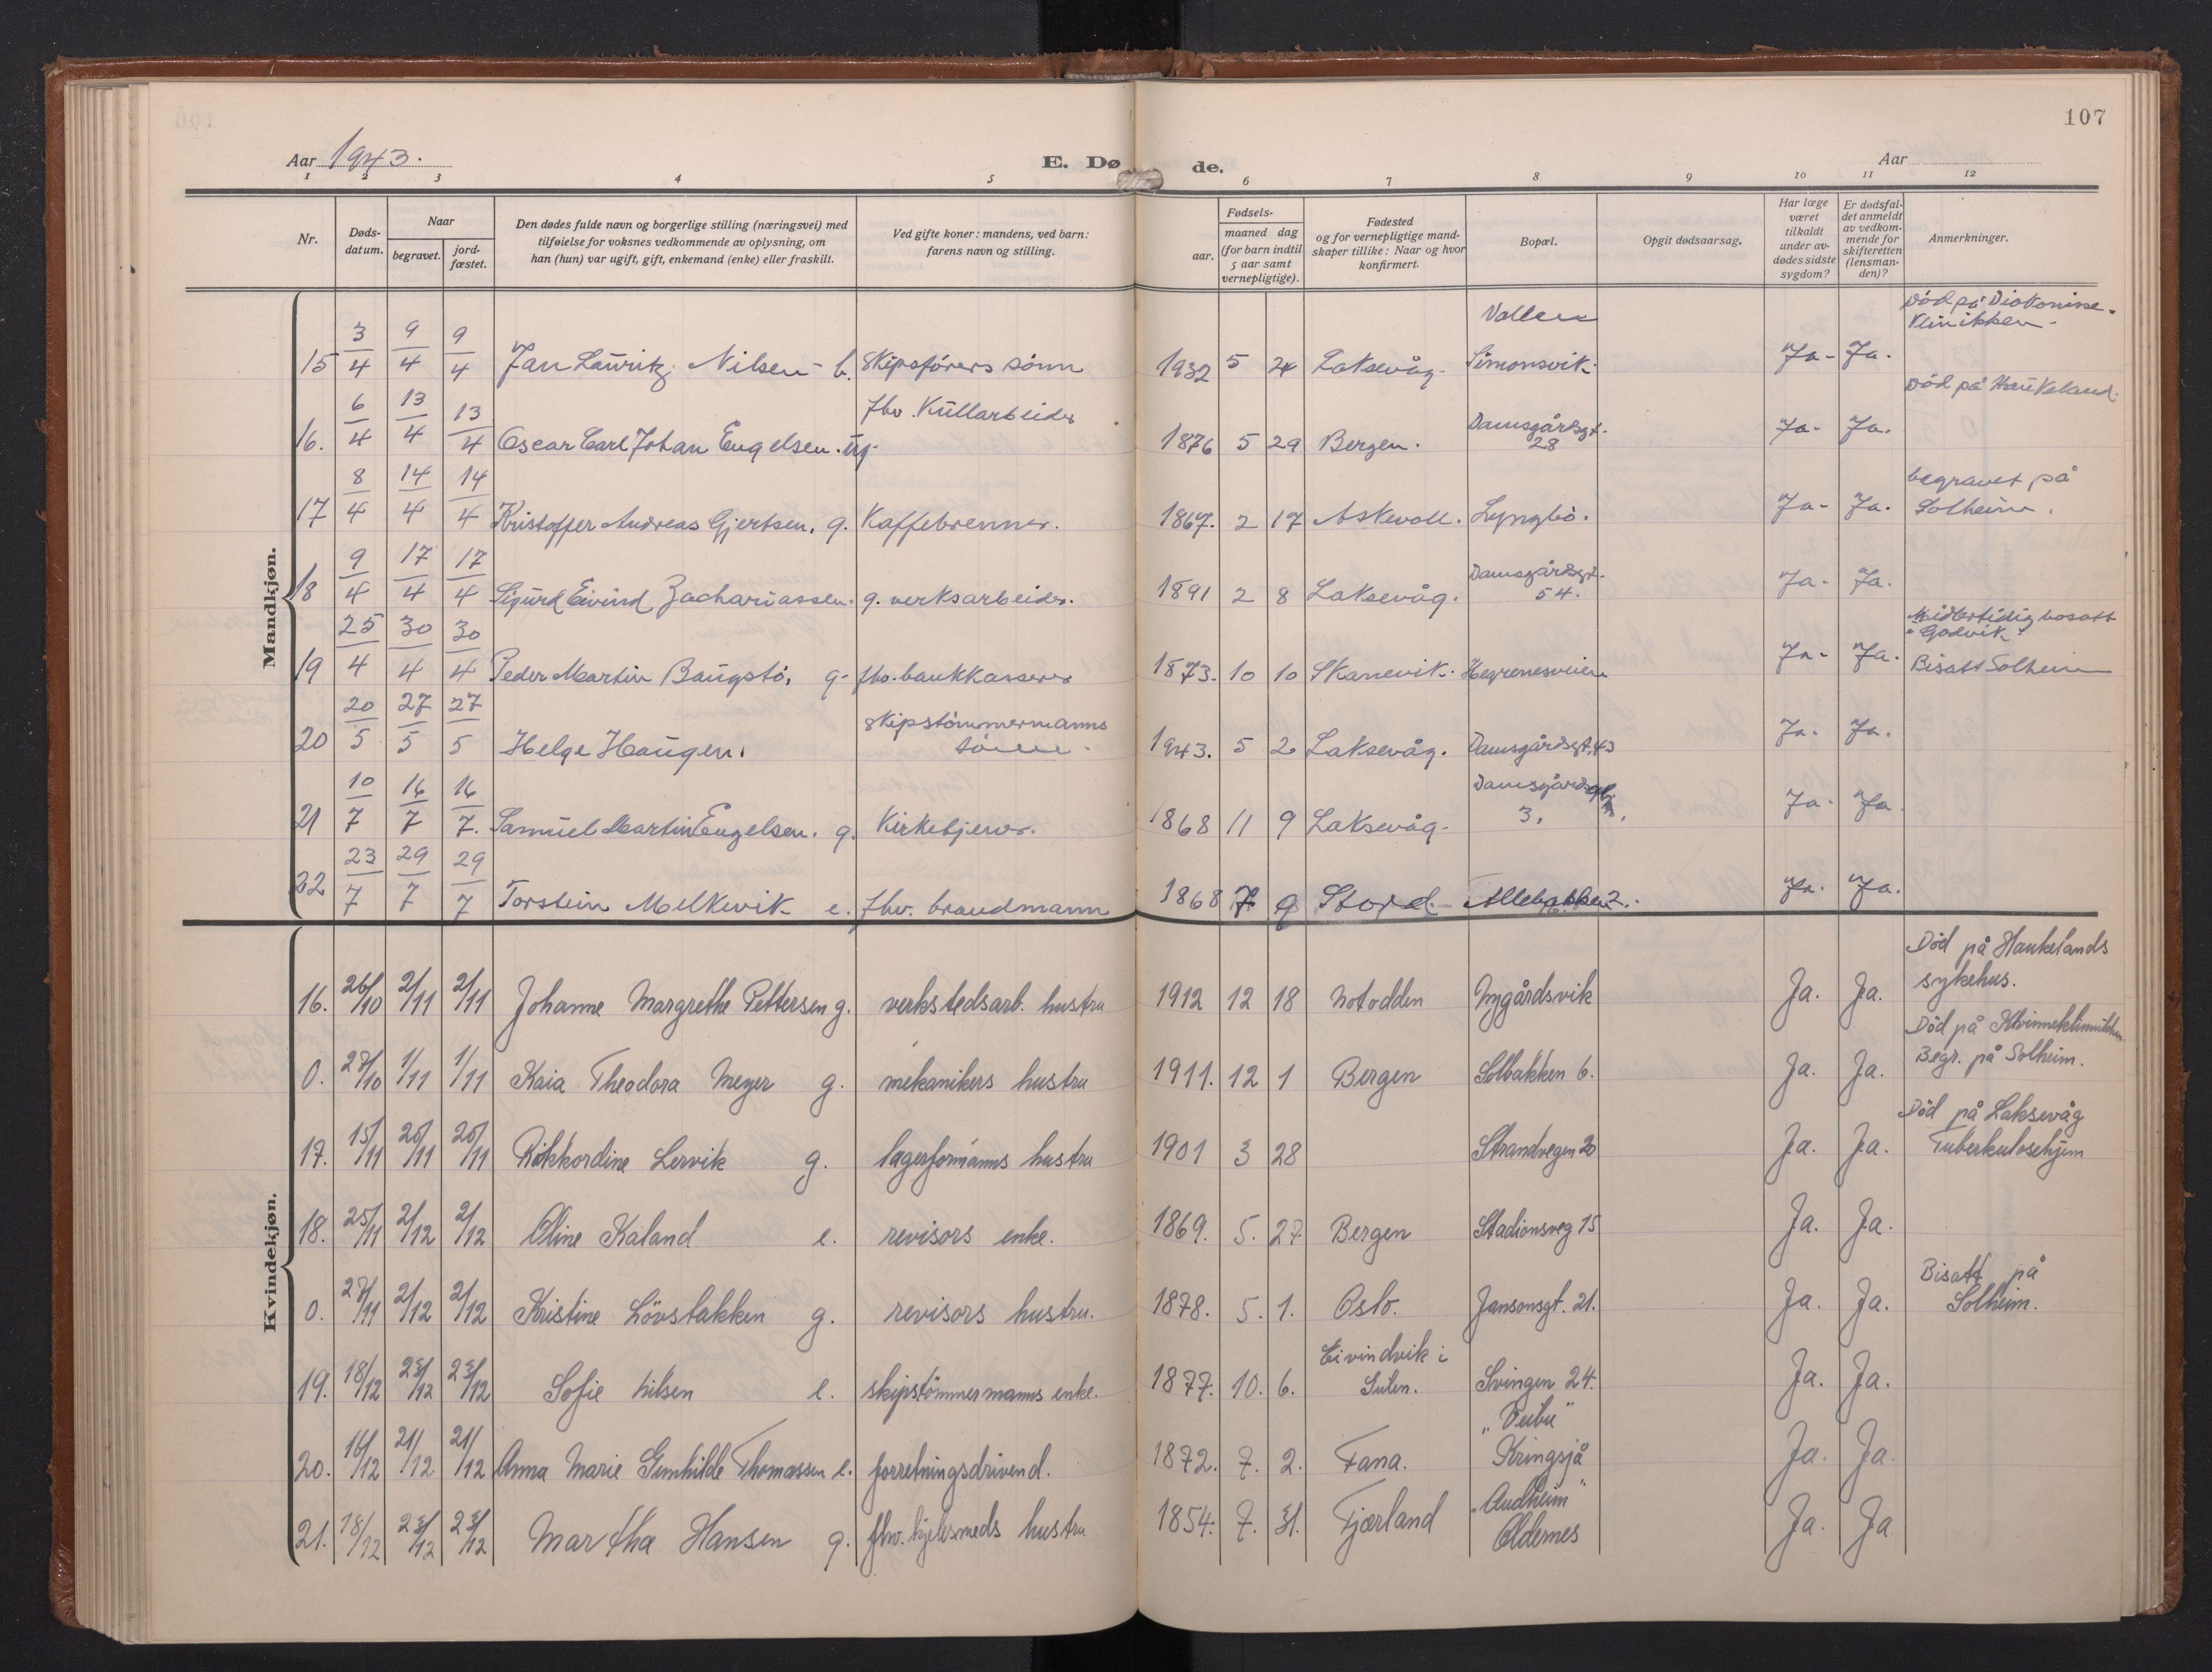 107
Aar 1943.
E. Dø de.
Aar
1 2 3 4 5 6 7 8 9 10 11 12
Nr.
Døds-
datum.
Naar
begravet.
jord-
fæstet.
Den dødes fulde navn og borgerlige stilling (næringsvei) med
tilføielse for voksnes vedkommende av oplysning, om
han (hun) var ugift, gift, enkemand (enke) eller fraskilt.
Ved gifte koner: mandens, ved barn:
farens navn og stilling.
Fødsels-
aar.
maaned dag
(for barn indtil
5 aar samt
vernepligtige).
Fødested
og for vernepligtige mand-
skaper tillike: Naar og hvor
konfirmert.
Bopæl.
Opgit dødsaarsag.
Har læge
været
tilkaldt
under av-
dødes sidste
sygdom?
Er dødsfal-
det anmeldt
av vedkom-
mende for
skifteretten
(lensman-
den)?
Anmerkninger.
Mandkjøn.
Vallen
Død på Diakonisse-
klinikken.
15 3/4 9/4 9/4 Jan Lauritz Nilsen b. Skipsførers sønn 1932 5 24 Laksevåg. Simonsvik. Ja- Ja.
fhv. Kullarbeider
Død på Haukeland.
16. 6/4 13/4 13/4 Oscar Carl Johan Engelsen. ug. 1876 5 29 Bergen. Damsgårdsgt. 28 Ja- Ja.
begravet på
17 8/4 14/4 14/4 Kristoffer Andreas Gjertsen. g. Kaffebrenner. 1867. 2 17 Askevoll. Lyngbø. Ja- Ja. Solheim.
18 9/4 17/4 17/4 Sigurd Eivind Zachariassen. g. verksarbeider. 1891 2 8 Laksevåg. Damsgårdsgt. 54. Ja- Ja.
Midlertidig bosatt
"Godvik"
19 25/4 30/4 30/4 Peder Martin Baugstø. g- fhv. bankkasserer 1873. 10 10 Skånevik. Hegrenesveien Ja- Ja. Bisatt Solheim
20 20/5 27/5 27/5 Helge Haugen. Skipstømmermanns sønn. 1943. 5 2 Laksevåg. Damsgårdsgt. 43 Ja. Ja.
21 10/7 16/7 16/7. Samuel Martin Engelsen. g. Kirketjener. 1868 11 9 Laksevåg. 3. Ja- Ja.
22 23/7 29/7 29/7 Torstein Melkevik e. fhv. brandmann 1868 7 9 Stord. Allebakken 2. Ja. Ja.
Kvindekjøn.
Død på Haukelands
16. 26/10 2/11 2/11 Johanne Margrethe Pettersen g. verkstedsarb. hustru 1912 12 18 Notodden Nygårdsvik Ja. Ja. sykehus.
Død på Kvinneklinikken
0. 27/10 1/11 1/11 Kaia Theodora Meyer g. mekanikers hustru 1911. 12 1 Bergen Solbakken 6. Ja. Ja. Begr. på Solheim.
Død på Laksevåg
17. 15/11 20/11 20/11 Rikkordine Lervik g. lagerformanns hustru 1901 3 28 Strandvegen 20 Ja. Ja. Tuberkulosehjem
18. 25/11 2/12 2/12 Oline Kaland e. revisors enke. 1869. 5. 27. Bergen Stadionsveg 15 Ja. Ja.
Bisatt på
0. 27/11 2/12 2/12 Kristine Lövstakken g. revisors hustru. 1878. 5. 1. Oslo. Jansonsgt. 21. Ja. Ja. Solheim.
Eivindvik i
19. 18/12 23/12 23/12 Sofie Nilsen e. skipstömmermanns enke. 1877. 10. 6. Sulen. Svingen 24. Ja. Ja.
20. 16/12 21/12 21/12 Anna Marie Gunhilde Thomassen e. forretningsdrivend. 1872. 7. 2. Fana. Kringsjå Ja. Ja.
"Audheim"
21. 18/12 23/12 23/12 Martha Hansen g. fhv. kjelesmeds hustru 1854. 7. 31. Fjærland Oldernes Ja. Ja